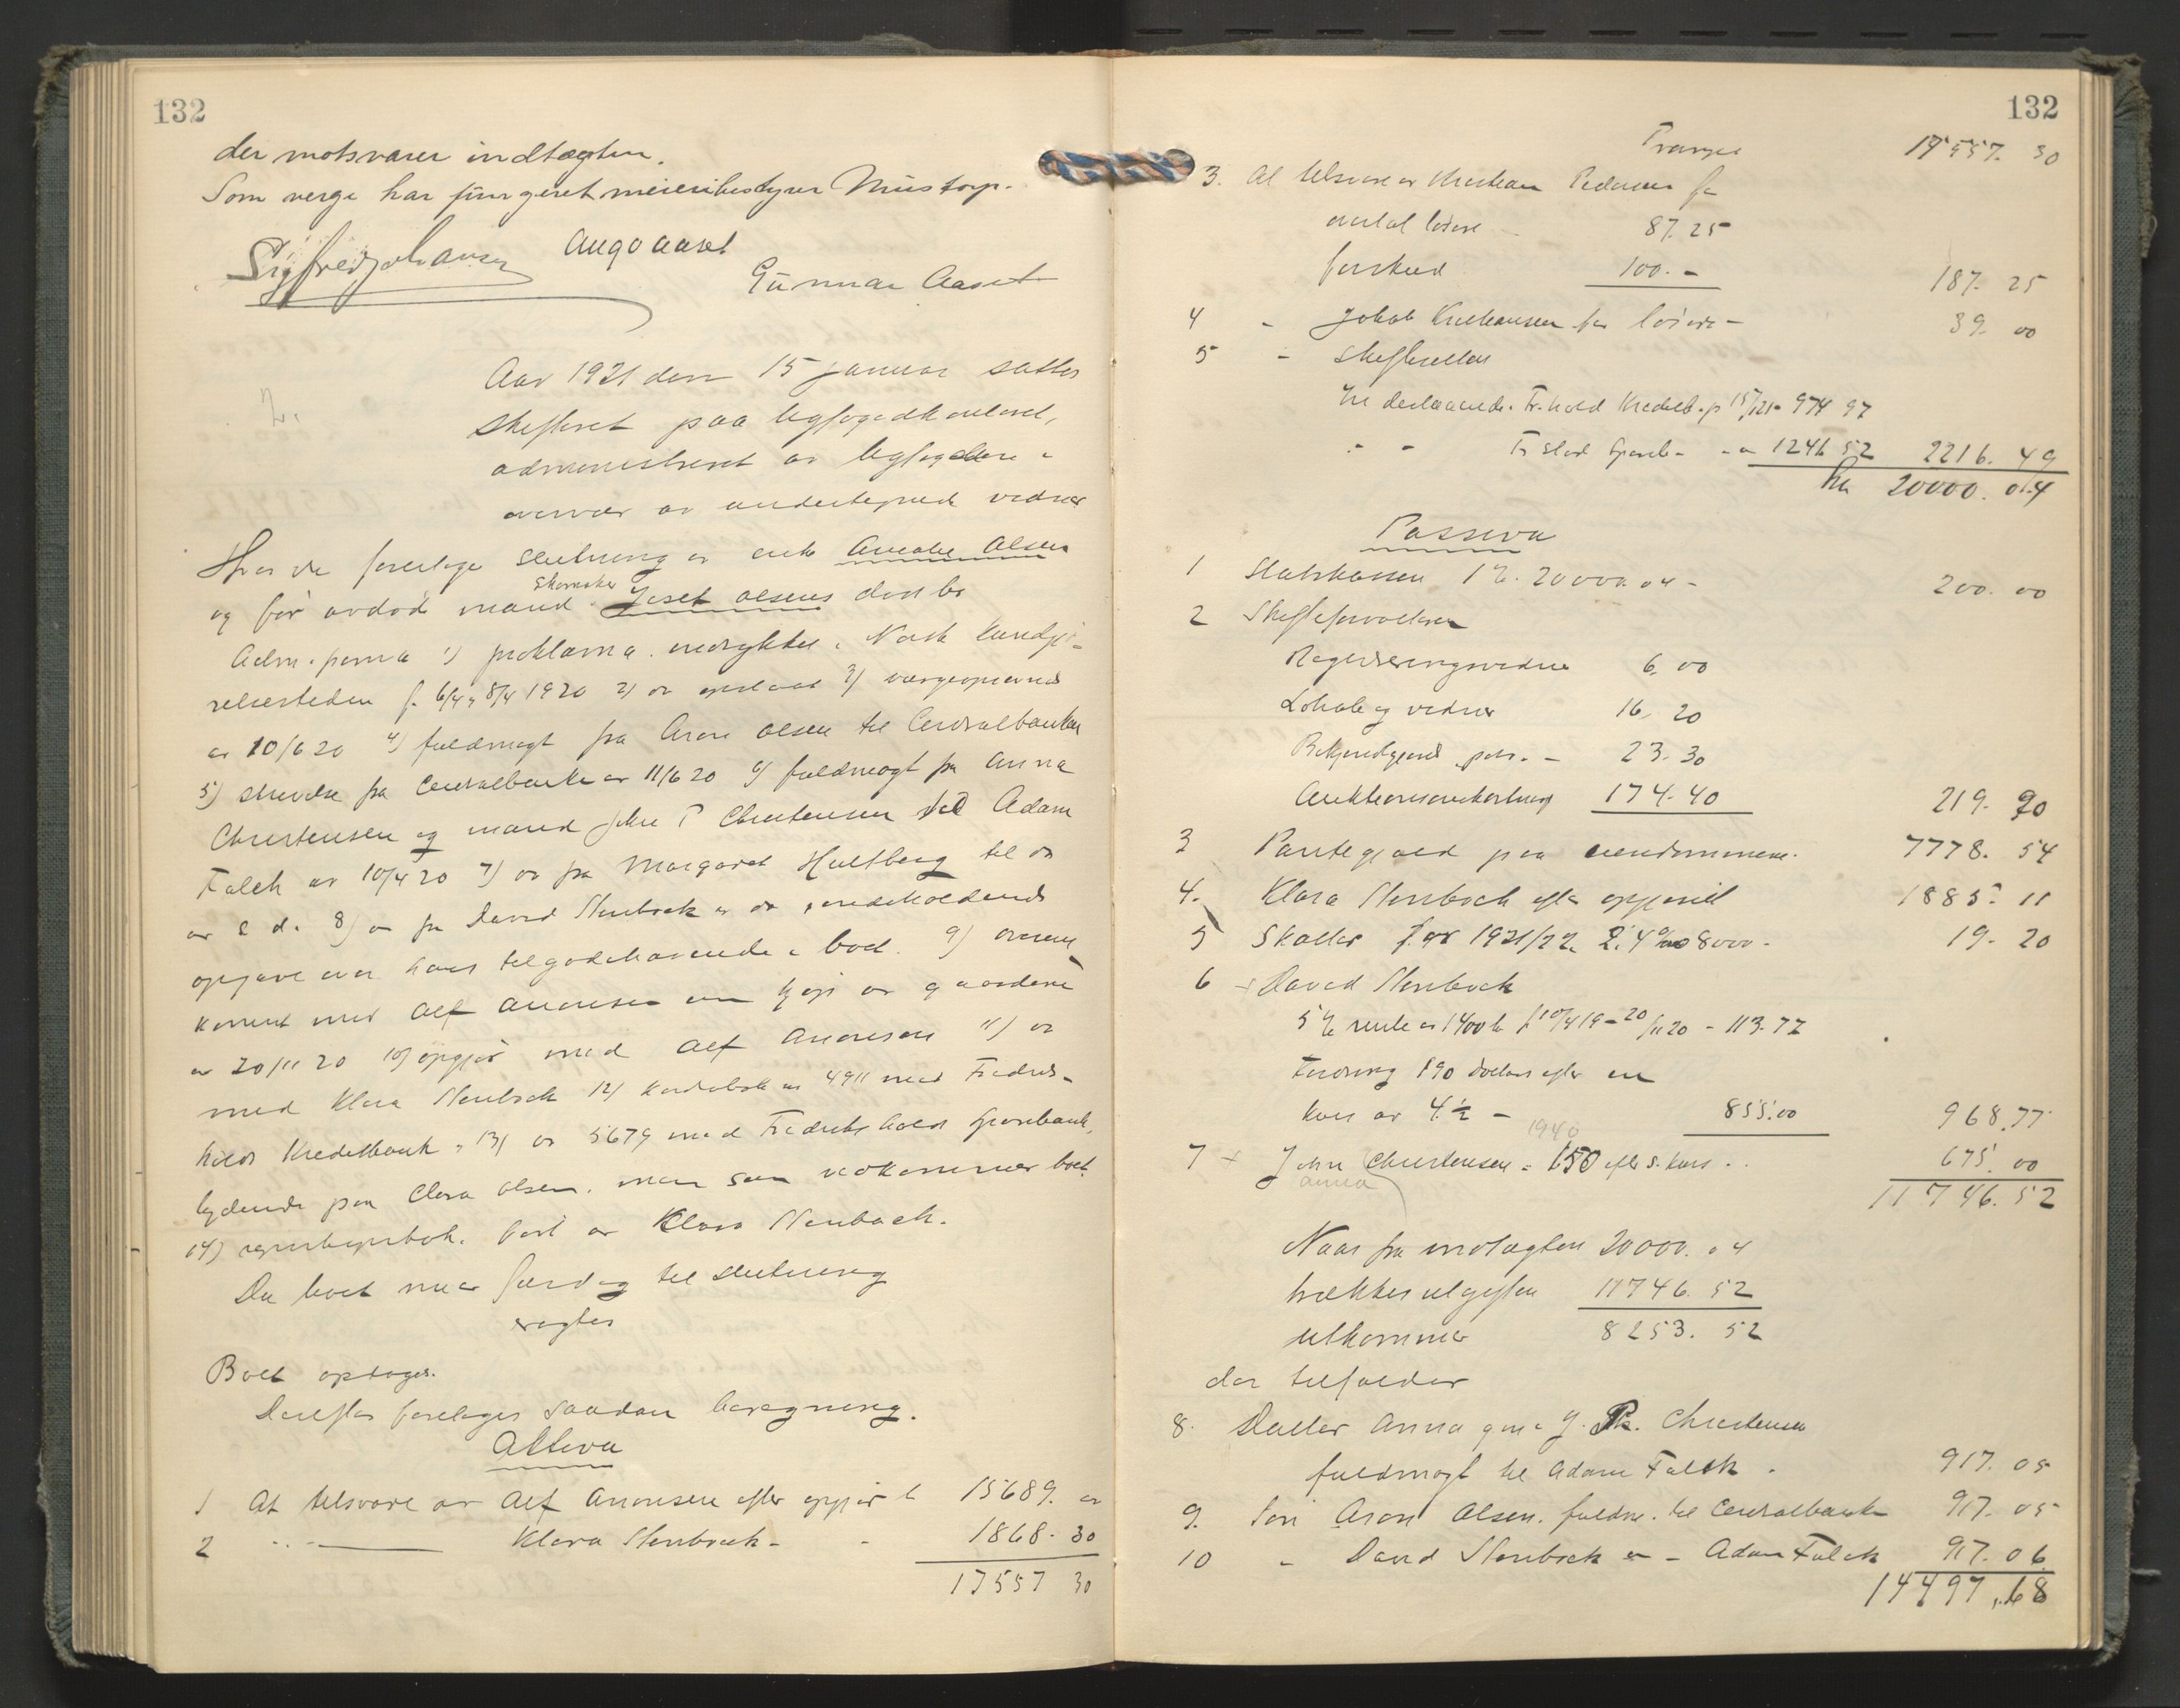 132
der motsvarer indtægten.
Som verge har fungeret meieribestyrer Mustorp.
Sigfred Johansen Aug. Aaset
Gunnar Aaset
Aar 1921 den 15 januar sattes
skifteret paa byfogedkontoret,
administreret av byfogden i
overvær av undertegnede vidner
Hvor da foretoges slutning av enke Amalie Olsen
og før avdød mand Skomaker Josef Olsens dødsbo
Adm. frema 1) proklama indrykket i Norsk Kundgjø-
relsestidende f. 6/4 og 8/4 1920 2) do opslaat 3) vergeopnævnelse
av 10/6 20 4) fuldmagt fra Aron Olsen til Centralbanken
5) skrivelse fra Centralbanken av 11/6 20 6) fuldmagt fra Anna
Christensen og mand John P Christensen til Adam
Falck av 10/4 20 7) do fra Margaret Hultberg til do
av s. d. 8) do fra David Stenbock av do indeholdende
opgave over hans tilgodehavende i boet. 9) overens-
komst med Alf Aronsen om kjøp av gaardene
av 20/11 20 10) opgjør med Alf Aronsen 11) do
med Klara Stenbock 12) kontrabok no 4911 med Fredriks-
halds Kreditbank, 13) do 5679 med Fredrikshalds Sparebank,
lydende paa Clara Olsen, men som vedkommer boet.
14) regnskapsbok ført av Klara Stenbock.
Da boet nu er færdig til slutning
vagtes
Boet optages.
Derefter foretages saadan beregning.
Activa
1 At tilsvare av Alf Aronsen efter opgjør k 15689. 00
2 " - Klara Stenbock - - 1868. 30
17557 30
132
Transp. 17557. 30
3. At tilsvare av Kristian Pedersen for
avertal løsøre - 87. 25
forskud 100. - 187. 25
4 - Jakob Knudsen for løsøre - 39. 00
5 - Skifteretten
Indestaaende Fr.hald Kreditb. p 15/1 21 - 974 97
" - Fr.hald Spareb - - 1241 52 2216. 49
kr 20000. 04
Passiva
1 Statskassen 1 % 20000.04 - 200. 00
2 Skifteforvalteren
Registreringsvidner 6. 00
Lokale og vidner 16. 20
Bekjendtgjørelse, porto - 23. 30
Auktionsomkostning 174. 40 219. 90
3 Pantegjæld paa eiendommene. 7778. 54
4. Klara Stenbock efter opgjøret 1885. 11
5 Skatter for 1921/22 2.4 ‰ 8000. - 19. 20
6 David Stenbock
5 % rente av 1400 kr f 10/4 19 - 20/11 20 - 113. 77
Fordring 190 dollars efter en
kurs av 4 1/2 - 855. 00 968. 77
7 John Christensen = 150 efter s. kurs . . 675. 00
Anna 1940
11746. 52
Naar fra indtægten 20000. 04
trækkes utgiften 11746. 52
utkommer 8253. 52
der tilfalder
8. Datter Anna gm. J. P. Christensen
fuldmagt til Adam Falck. 917. 05
9. Søn Aron Olsen. fuldm. til Centralbanken 917. 05
10 - David Stenbock - - Adam Falck 917. 06
14497. 68